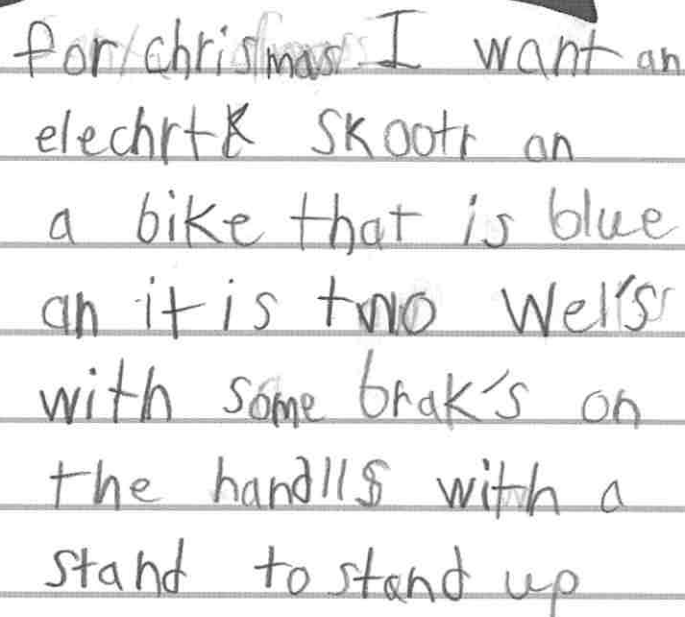 for chrismas I want an
elechrtk skootr an
a bike that is blue
an it is two Wel's
with some brak's on
the handlls with a
stand to stand up